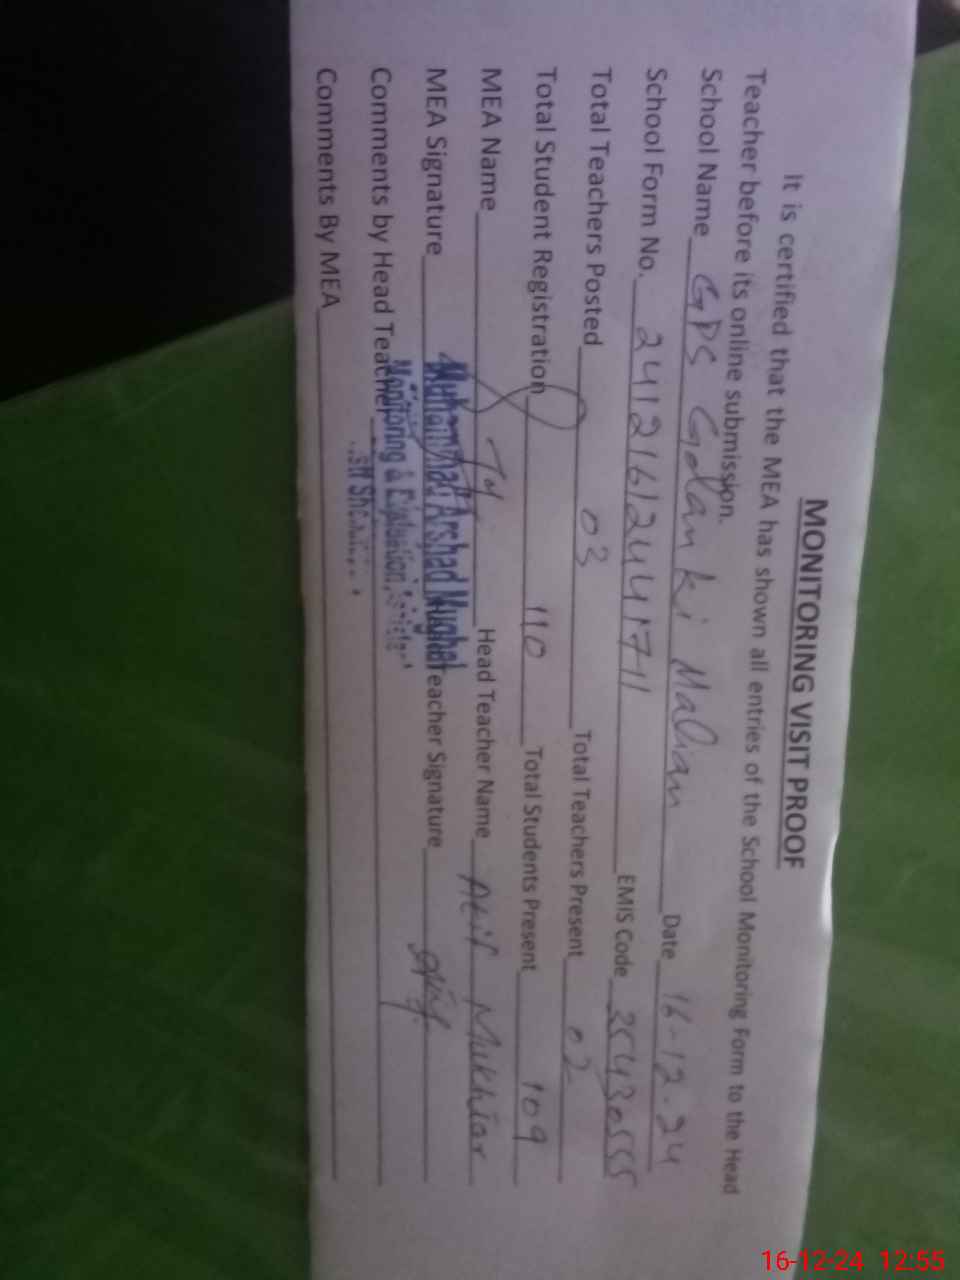 MONITORING VISIT PROOF
It is certified that the MEA has shown all entries of the School Monitoring Form to the Head
Teacher before its online submission.
School Name GPS Golan ki Malian Date 16-12-24
School Form No. 24121612441711 EMIS Code
Total Teachers Posted 03 Total Teachers Present 02
Total Student Registration 110 Total Students Present 109
MEA Name Head Teacher Name Akif Mukhtar
MEA Signature Teacher Signature
Muhammad Arshad Mughal
Comments by Head Teacher
Monitoring & Evaluation
Comments By MEA
16-12-24 12:55